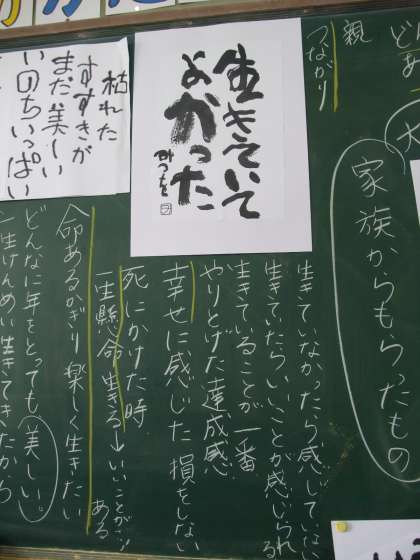 親
つながり
家族からもらったもの
生きていて
よかった
みつを
枯れた
すすきが
まだ美しい
いのちいっぱい
生きていなかったら感じていない
生きていたらいいことが感じられる
生きていることが一番
やりとげた達成感
幸せに感じた 損をしない
死にかけた時
一生懸命生きる→いいことが…ある
命あるかぎり楽しく生きたい
どんなに年をとっても美しい。
一生けんめい生きてきたから